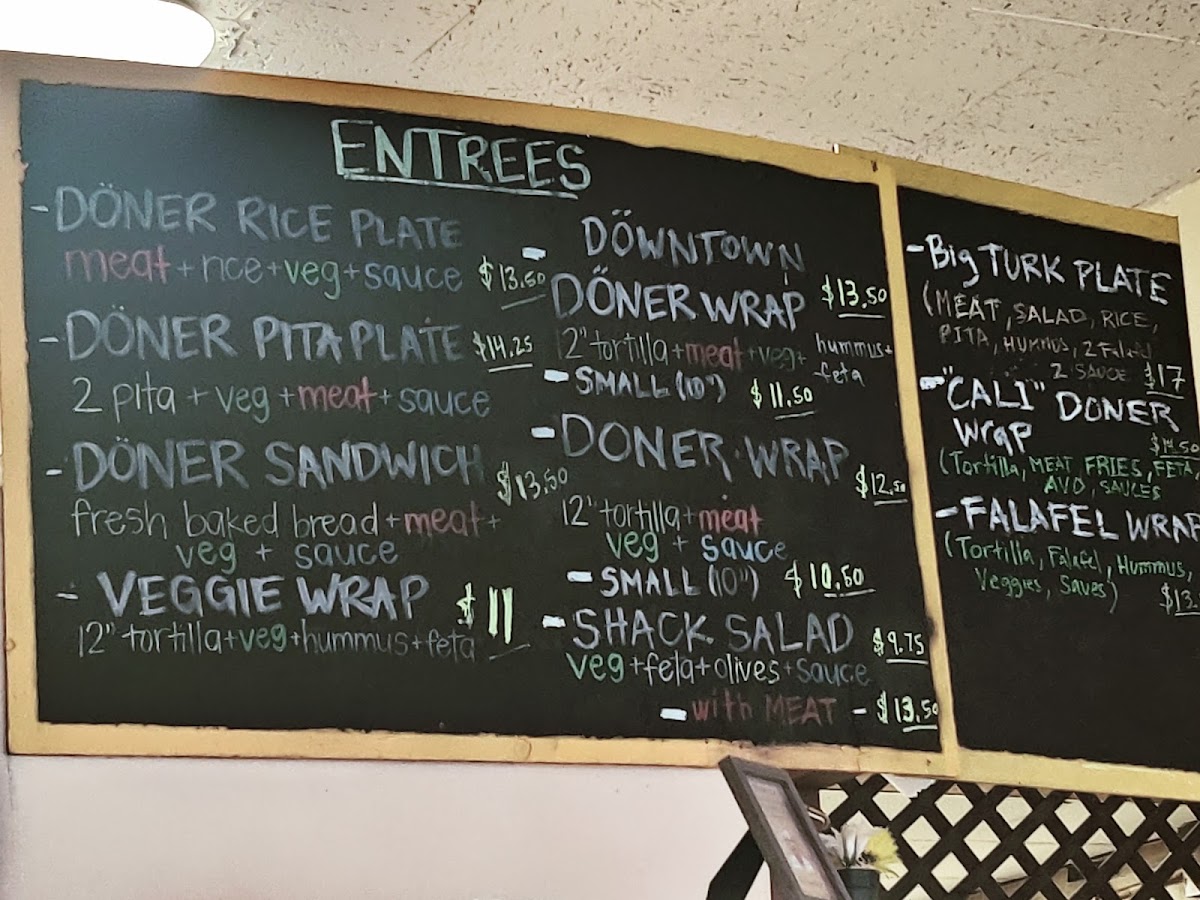 ENTREES
- DÖNER RICE PLATE
meat + rice + veg + sauce $13.50
- DÖNER PITA PLATE $14.25
2 pita + veg + meat + sauce
- DÖNER SANDWICH $13.50
fresh baked bread + meat +
veg + sauce
- VEGGIE WRAP $11
12" tortilla + veg + hummus + feta
- DÖWNTOWN
DÖNER WRAP $13.50
12" tortilla + meat + veg + hummus +
feta
- SMALL (10") $11.50
- DONER WRAP $12.50
12" tortilla + meat
veg + sauce
- SMALL (10") $10.50
- SHACK SALAD $9.75
veg + feta + olives + sauce
- with MEAT - $13.50
- Big TURK PLATE
(MEAT, SALAD, RICE,
PITA, HUMMUS, 2 Falafel
2 SAUCE $17
- "CALI" DONER
Wrap $14.50
(Tortilla, MEAT, FRIES, FETA
AVO, SAUCES
- FALAFEL WRAP
(Tortilla, Falafel, Hummus,
Veggies, Saues) $13